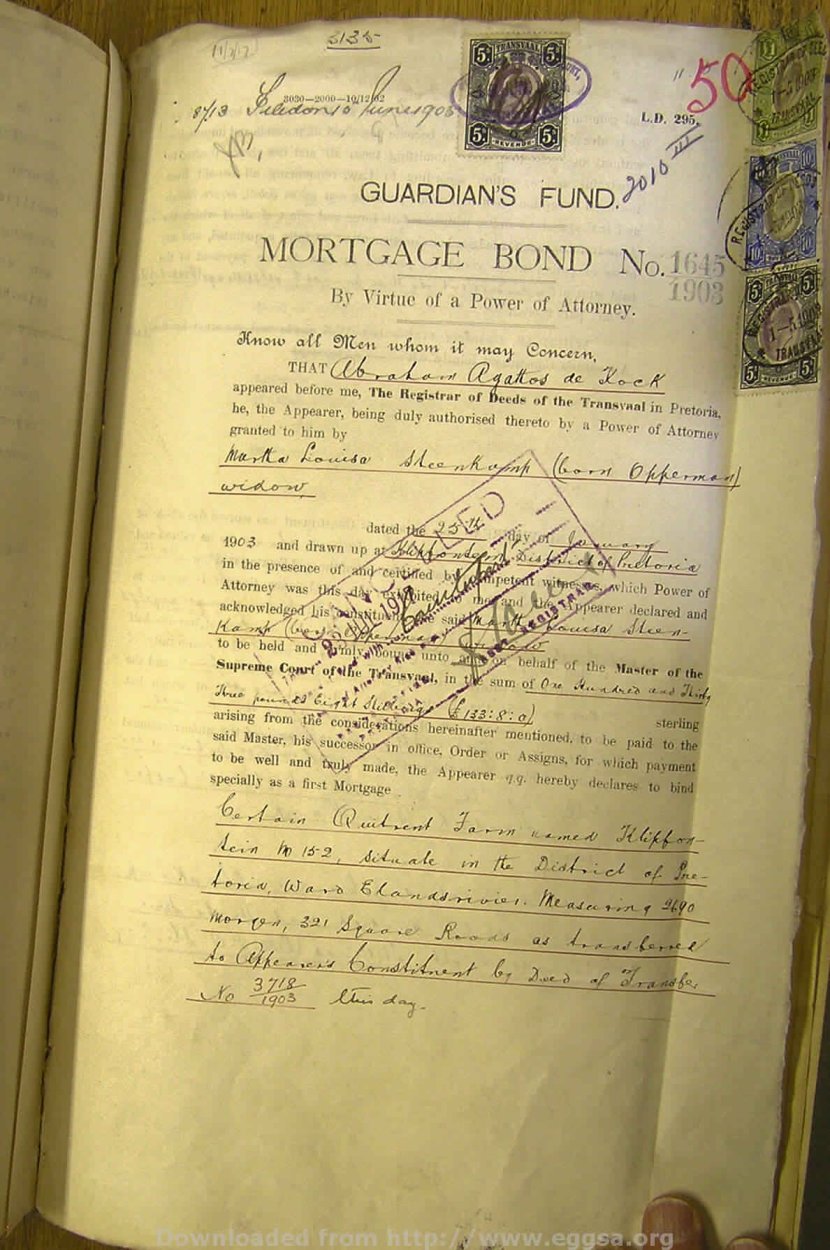 3135
11/3/17
3030—2000—10/12/02
8713 June 1903
5/- TRANSVAAL 5/-
5/- REVENUE 5/-
" 50
L.D. 295.
2010 III
GUARDIAN'S FUND.
MORTGAGE BOND No. 1645
1903
By Virtue of a Power of Attorney.
Know all Men whom it may Concern,
THAT Abraham Agattos de Kock
appeared before me, The Registrar of Deeds of the Transvaal in Pretoria,
he, the Appearer, being duly authorised thereto by a Power of Attorney
granted to him by
Martha Louisa Steenkamp (born Opperman)
widow
dated the 25th day of January
1903 and drawn up at Klipfontein District of Pretoria
in the presence of and certified by competent witnesses, which Power of
Attorney was this day exhibited to me and the Appearer declared and
acknowledged his Constituent, the said Martha Louisa Steen-
kamp (born Opperman) widow
to be held and firmly bound unto and on behalf of the Master of the
Supreme Court of the Transvaal, in the sum of One Hundred and Thirty
Three pounds Eight Shillings (£133:8:0)
sterling
arising from the considerations hereinafter mentioned, to be paid to the
said Master, his successor in office, Order or Assigns, for which payment
to be well and truly made, the Appearer q.q. hereby declares to bind
specially as a first Mortgage
Certain Quitrent Farm named Klipfon-
tein No 152, situate in the District of Pre-
toria, Ward Elandsrivier. Measuring 2690
Morgen, 321 Square Roods as transferred
to Appearer's Constituent by Deed of Transfer
No 3718/1903 this day.
CANCELLED
Downloaded from http://www.eggsa.org